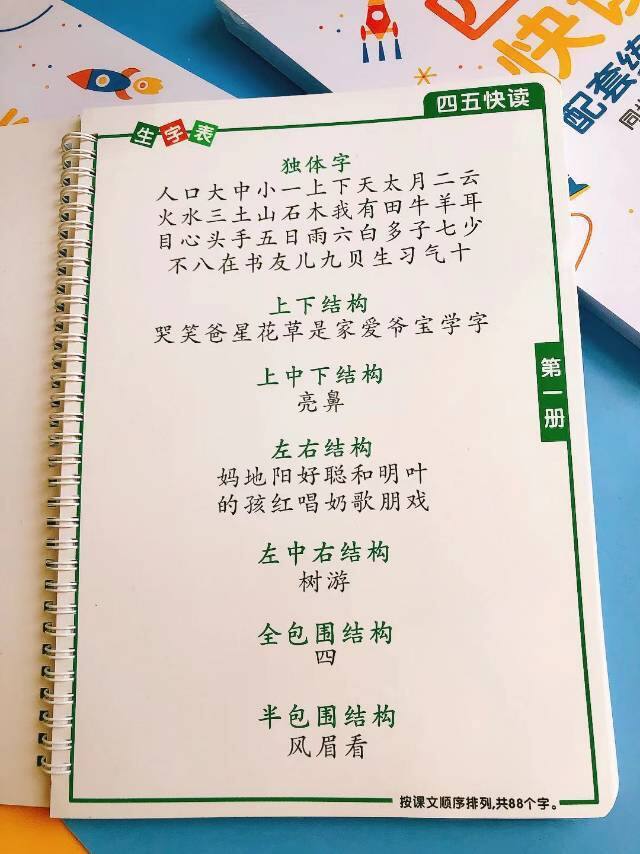 四五快读
生字表
独体字
人口大中小一上下天太月二云
火水三土山石木我有田牛羊耳
目心头手五日雨六白多子七少
不八在书友儿九贝生习气十
上下结构
哭笑爸星花草是家爱爷宝学字
上中下结构
亮鼻
左右结构
妈地阳好聪和明叶
的孩红唱奶歌朋戏
左中右结构
树游
全包围结构
四
半包围结构
风眉看
第一册
按课文顺序排列,共88个字。
快读
配套练